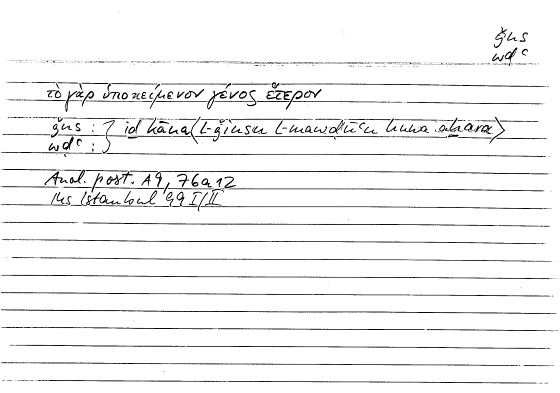 ǧns
wḍʿ
τὸ γὰρ ὑποκείμενον γένος ἕτερον
ǧns : } iḏ kāna (l-ǧinsu l-mawḍūʿu huwa āḫara)
wḍʿ :
Anal. post. A9, 76a12
Hs Istanbul 99 I/II